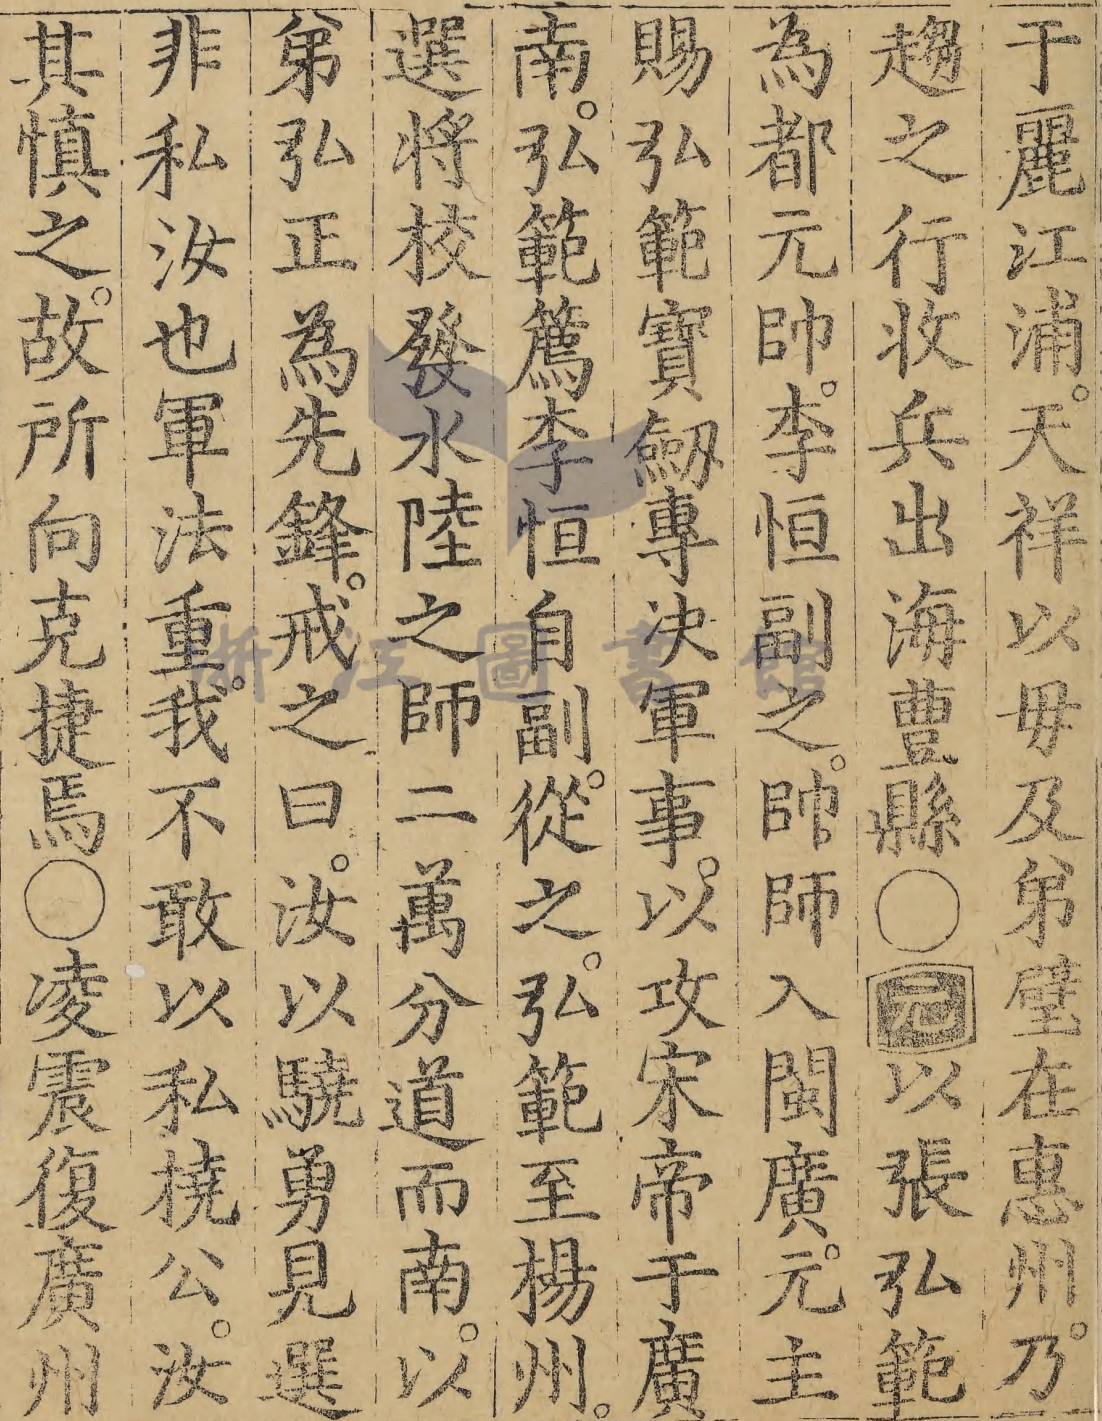 于麗江浦。天祥以毋及弟壁在惠州。乃
趨之行收兵出海豊縣○元以張弘範
為都元帥。李恒副之。帥師入閩廣。元主
賜弘範寶劔專决軍事。以攻宋帝于廣
南。弘範薦李恒自副。從之。弘範至楊州。
選將校發水陸之師二萬分道而南。以
弟弘正為先鋒。戒之曰。汝以驍勇見選
非私汝也軍法重。我不敢以私撓公。汝
其慎之。故所向克捷焉○凌震復廣州
浙江圖書館